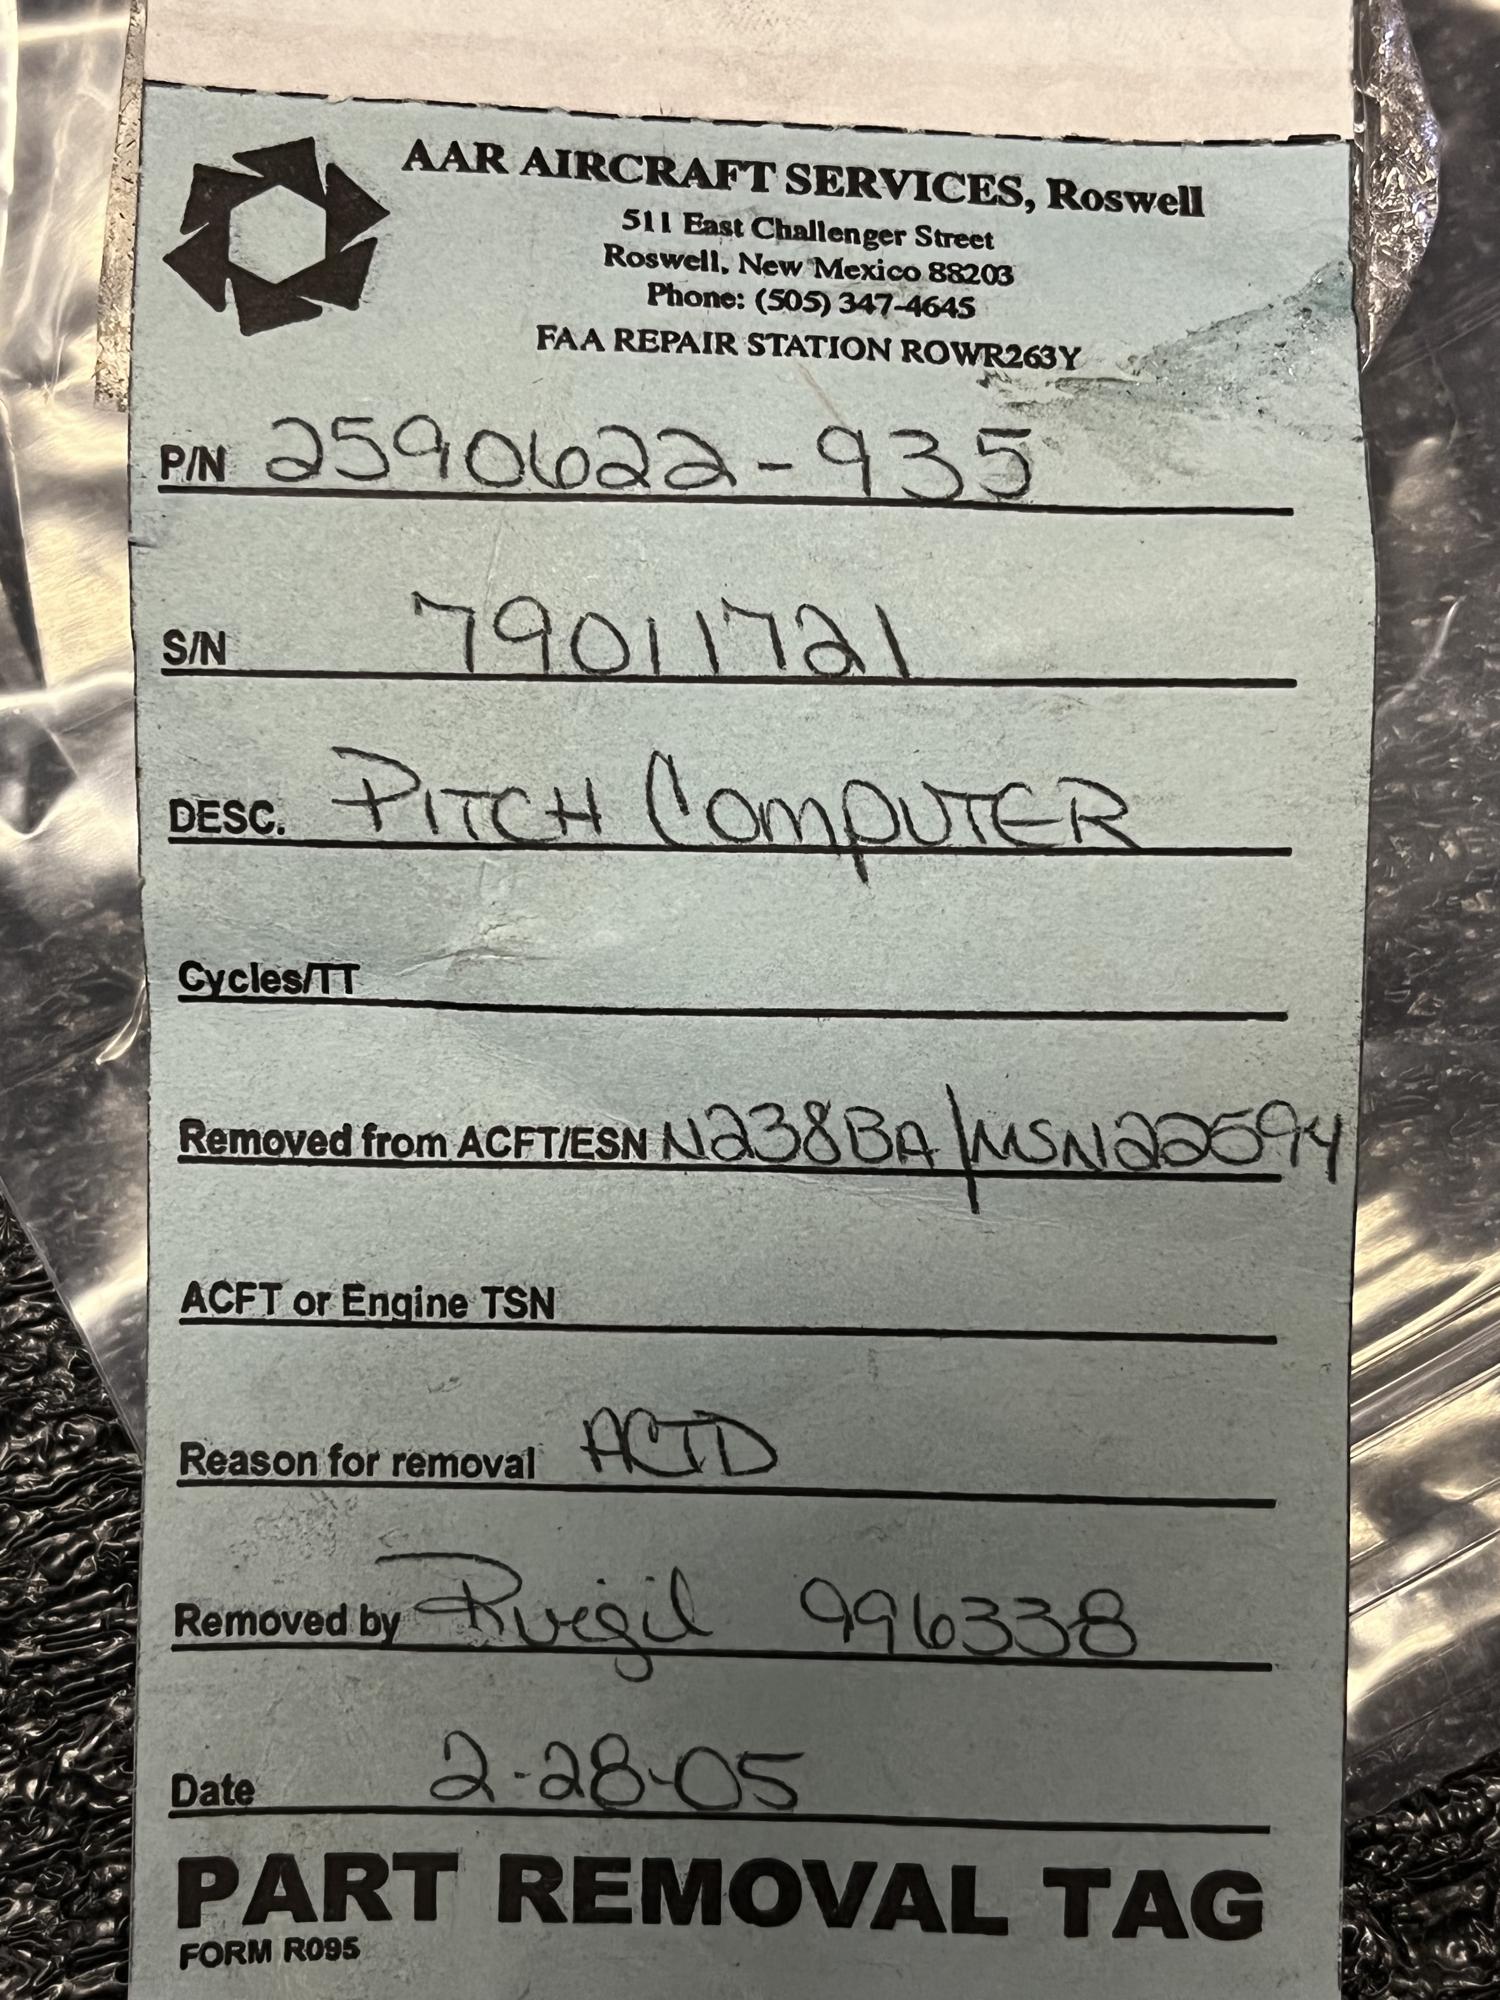 AAR AIRCRAFT SERVICES, Roswell
511 East Challenger Street
Roswell, New Mexico 88203
Phone: (505) 347-4645
FAA REPAIR STATION ROWR263Y
P/N 2590622-935
S/N 79011721
DESC. PITCH COMPUTER
Cycles/TT
Removed from ACFT/ESN N238BA/MSN22594
ACFT or Engine TSN
Reason for removal
Removed by 996338
Date 2-28-05
PART REMOVAL TAG
FORM R095